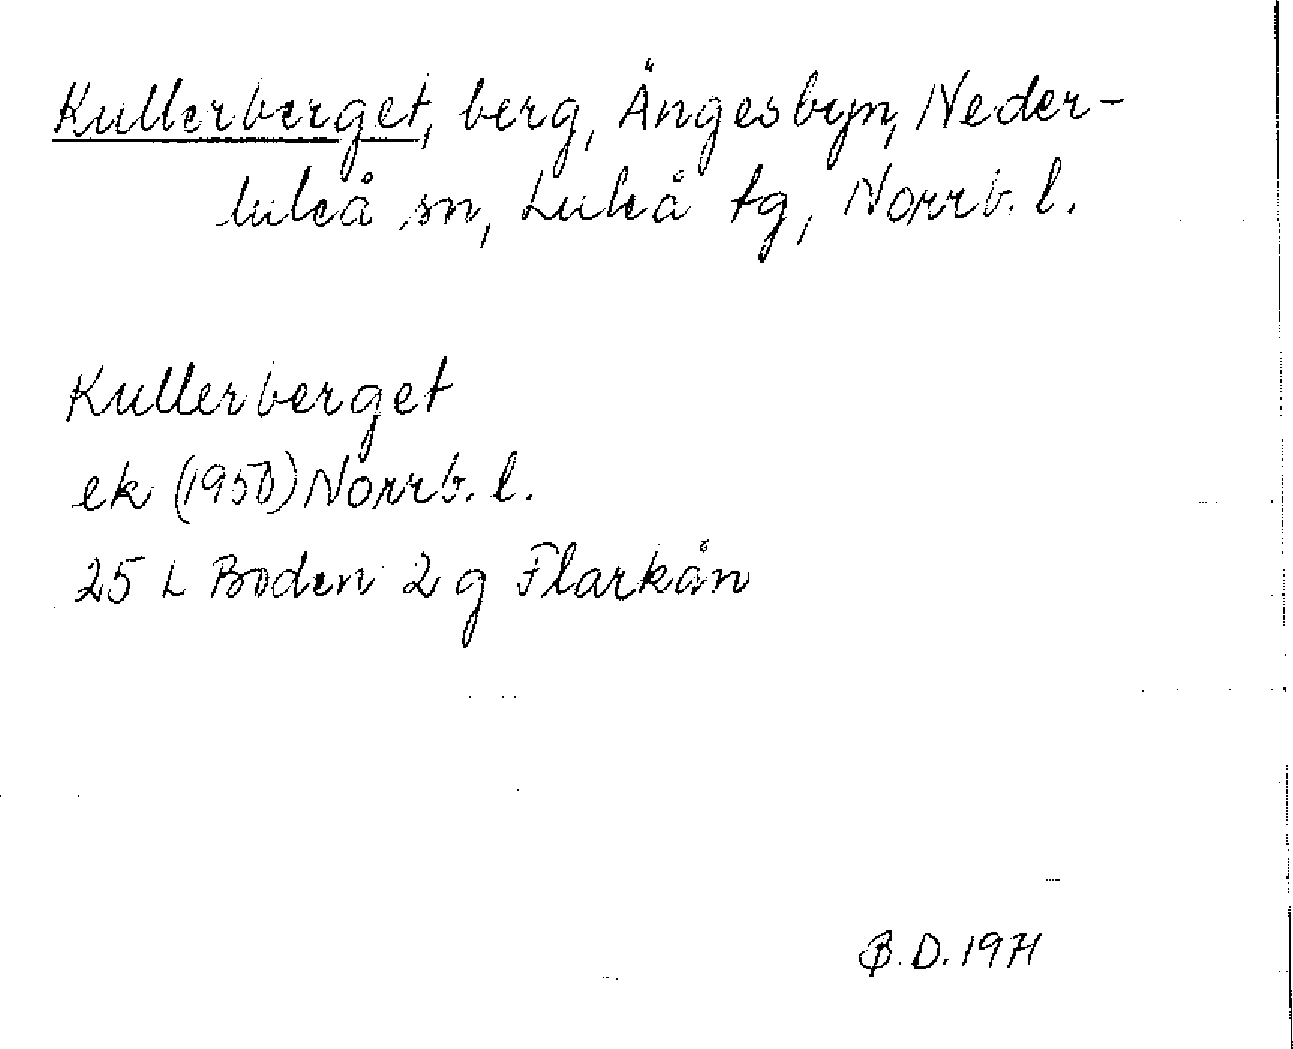 Kullerberget, berg, Ängesbyn, Neder-
luleå sn, Luleå tg, Norrb. l.
Kullerberget
ek (1950) Norrb. l.
25 L Boden 2 g Flarkån
B.D. 1971